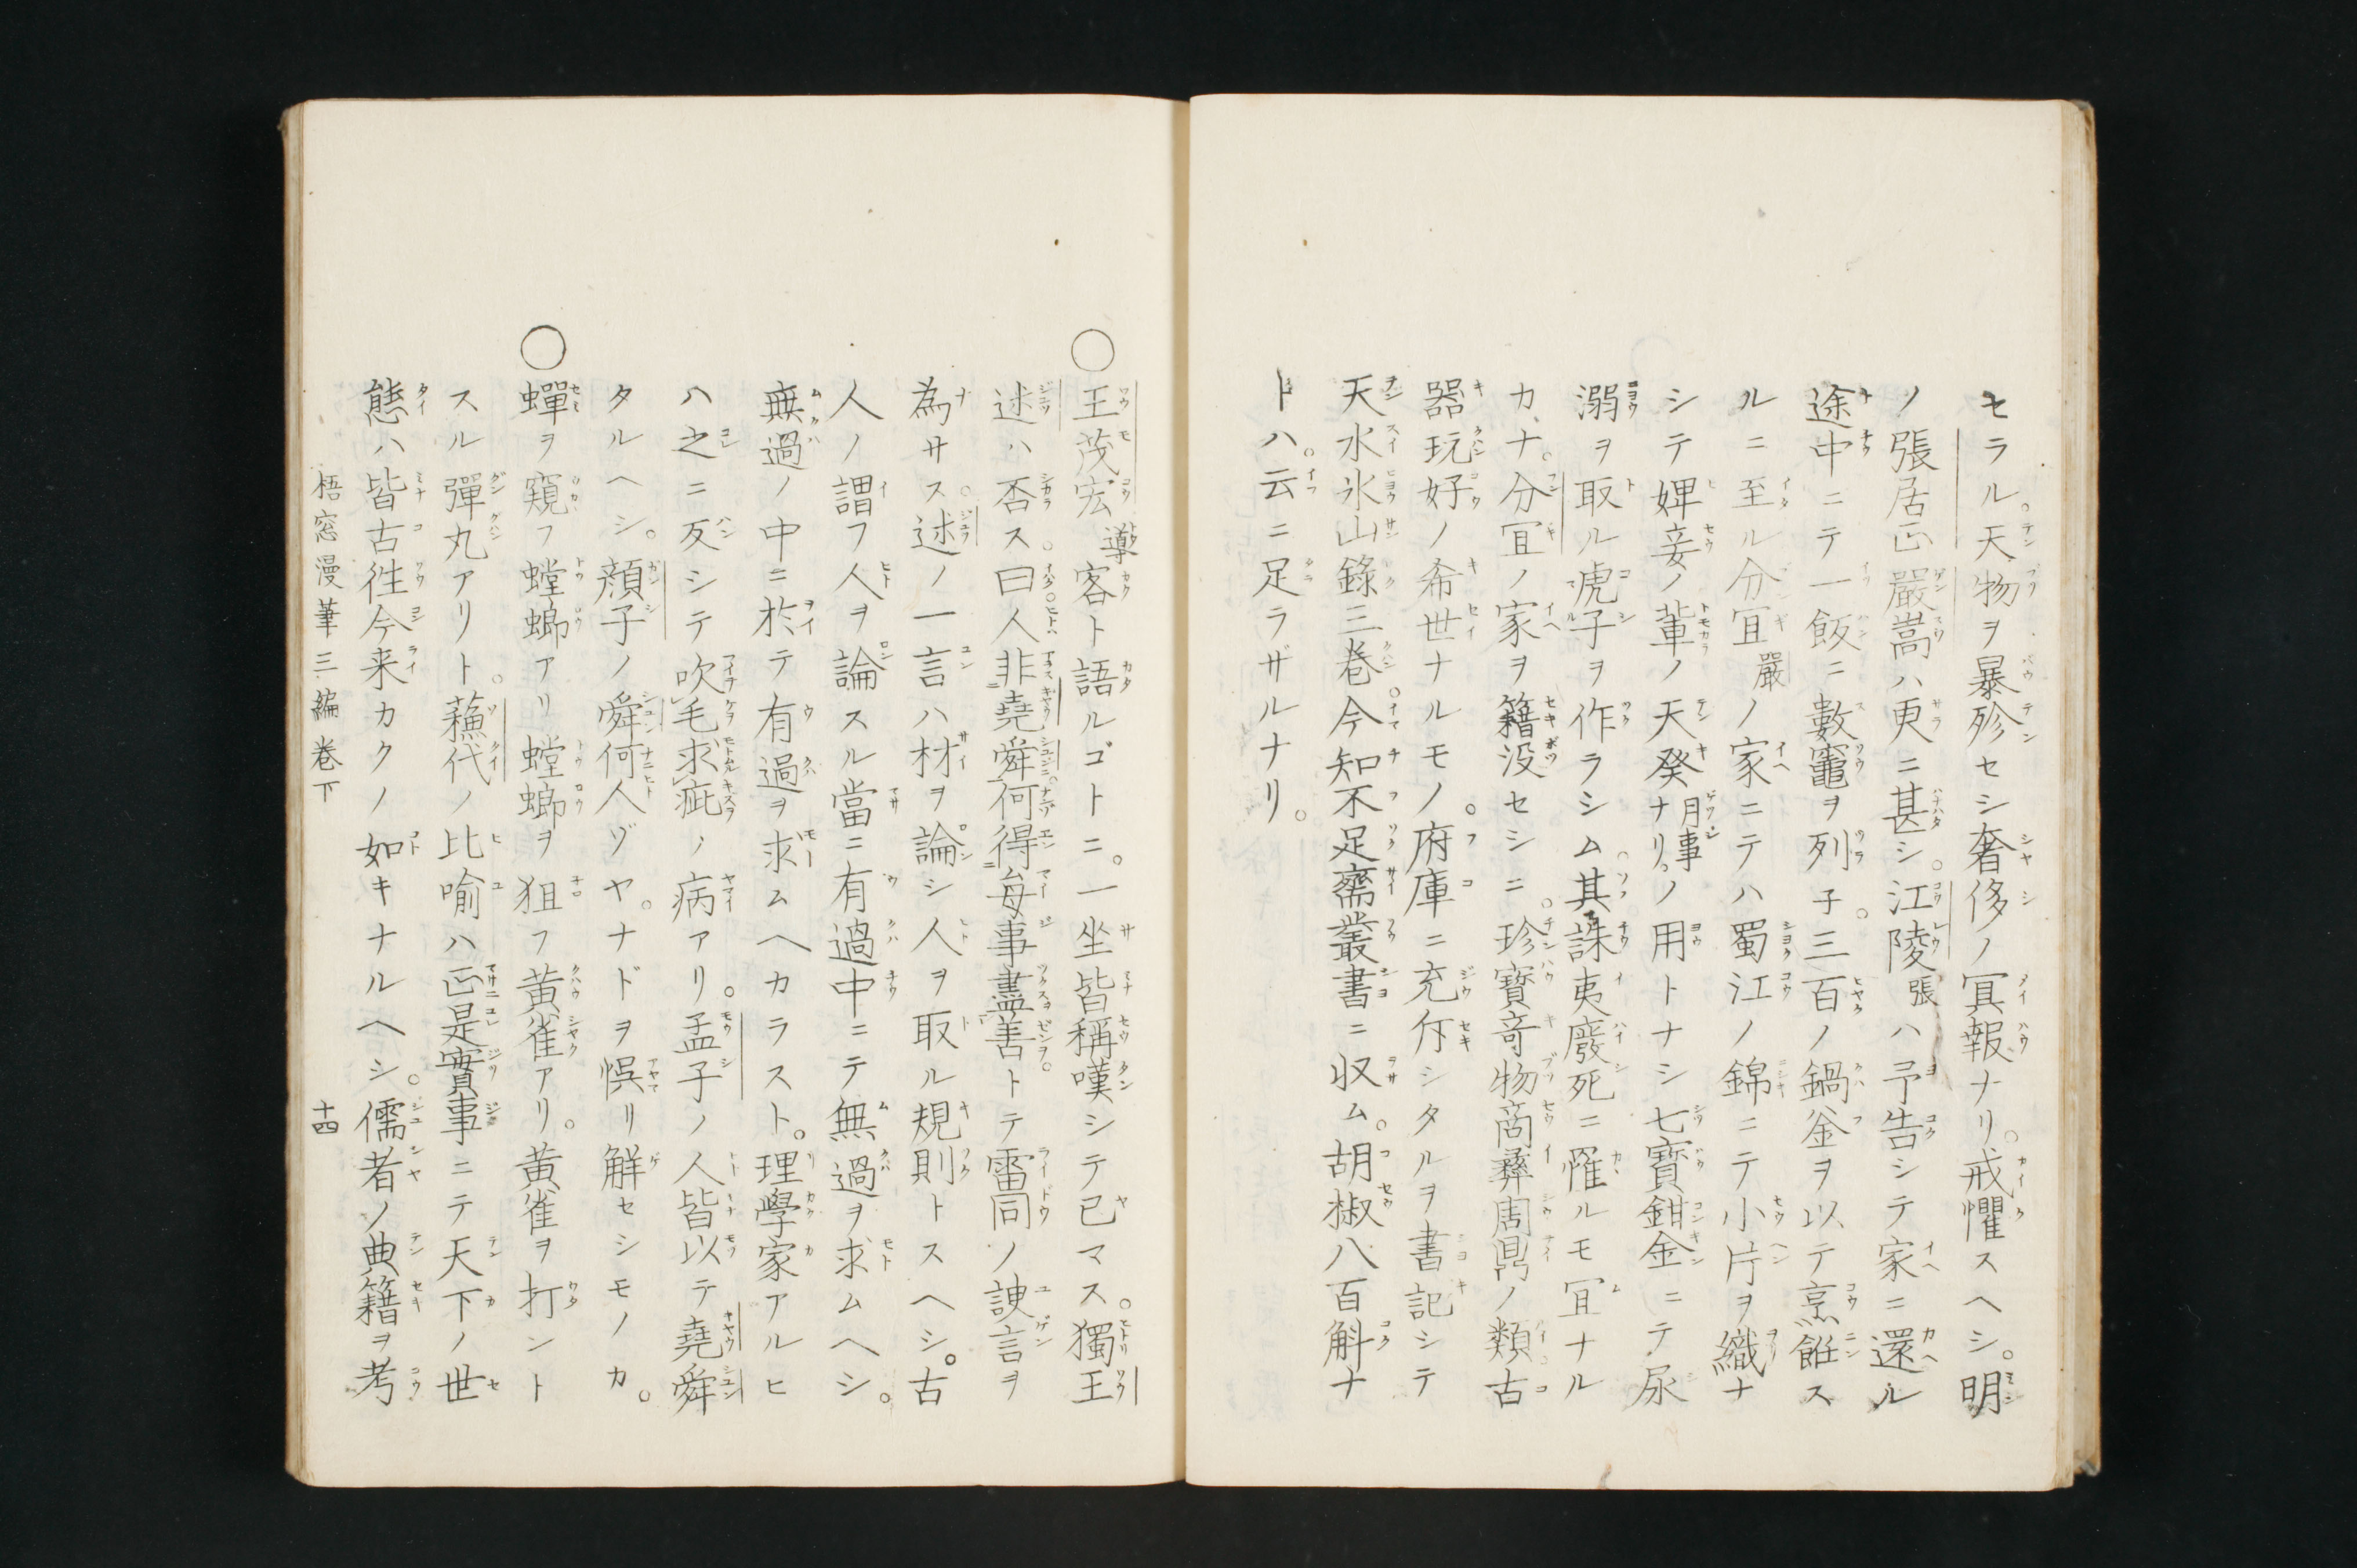 セラル。天物ヲ暴殄セシ奢侈ノ冥報ナリ。戒懼スヘシ。明
ノ張居正嚴嵩ハ更ニ甚シ。江陵張ハ予告シテ家ニ還ル
途中ニテ一飯ニ數竈ヲ列子。三百ノ鍋釜ヲ以テ烹餁ス
ルニ至ル分宜嚴ノ家ニテハ蜀江ノ錦ニテ小片ヲ織ナ
シテ婢妾ノ輩ノ天癸月事ナリ。ノ用トナシ七寶鉗金ニテ尿
溺ヲ取ル虎子ヲ作ラシム。其誅夷廢死ニ罹ルモ冝ナル
カナ。分宜ノ家ヲ籍没セシニ。珍寶竒物商彜周鼎ノ類古
器玩好ノ希世ナルモノ。府庫ニ充斥シタルヲ書記シテ
天水氷山錄三巻。今知不足齋叢書ニ収ム。胡椒八百斛ナ
トハ。云ニ足ラザルナリ。
○王茂宏導客ト語ルゴトニ。一坐皆稱嘆シテ已マス。獨王
述ハ否ス。曰人非堯舜。何得毎事盡善。トテ雷同ノ諛言ヲ
為サス。述ノ一言ハ材ヲ論シ人ヲ取ル規則トスヘシ。古
人ノ謂フ人ヲ論スル當ニ有過中ニテ無過ヲ求ムヘシ。
無過ノ中ニ於テ有過ヲ求ムヘカラスト。理學家アルヒ
ハ之ニ反シテ吹毛求疵ノ病アリ。孟子ノ人皆以テ堯舜
タルヘシ。顔子ノ舜何人ゾヤ。ナドヲ悞リ解セシモノカ。
○蟬ヲ窺フ螳螂アリ螳螂ヲ狙フ黄雀アリ。黄雀ヲ打ント
スル彈丸アリト。蘓代ノ比喻ハ正是實事ニテ天下ノ世
態ハ皆古徃今来カクノ如キナルヘシ。儒者ノ典籍ヲ考
梧窓漫筆三編巻下 十四